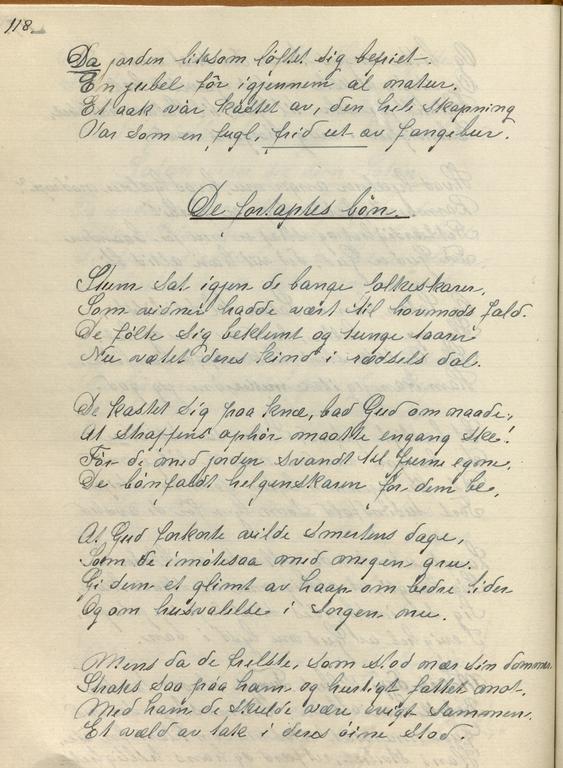 118.
Da jorden liksom føltet sig befriet.
En jubel för igjennem al natur.
Et aak var kastet av, den hele skapning
Var som en fugl, frid ut av fangebur.
De fortaptes bön.
Stum sat igjen de bange folkeskarer,
Som vidner hadde vært til hovmods fald.
De følte sig beklemt og tunge taarer
Nu vætet deres kind i rædsels dal.
De kastet sig paa knæ, bad Gud om naade,
At straffens ophör maatte engang ske!
För de med jorden svandt til fjerne egne,
De bönfaldt helgenskaren for dem be,
At Gud forkorte vilde smertens dage,
Som de imötesaa med megen gru.
Gi dem et glimt av haap om bedre tider
Og om husvalelse i sorgen nu.
Mens da de frelste, som stod nær sin dommer
Straks saa paa ham og hurtigt fattet mot.
Med ham de skulde være evigt sammen.
Et væld av tak i deres öine stod.